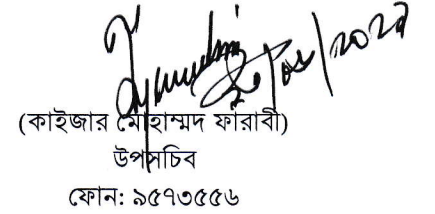 (কাইজার মোহাম্মদ ফারাবী)
উপসচিব
ফোন: ৯৫৭৩৫৫৬